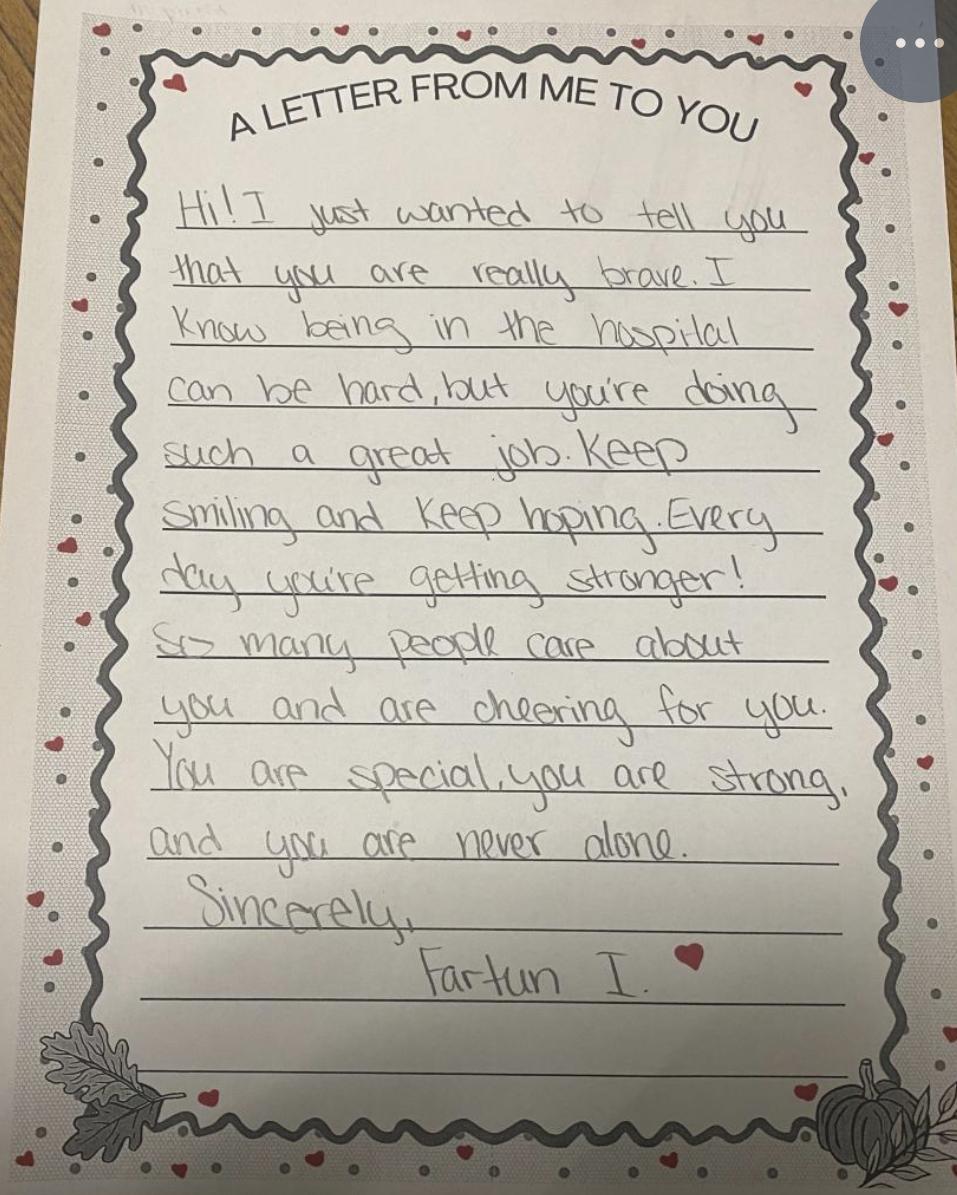 A LETTER FROM ME TO YOU
Hi! I just wanted to tell you
that you are really brave. I
Know being in the hospital
can be hard, but you're doing
such a great job. Keep
smiling and Keep hoping. Every
day you're getting stronger!
So many people care about
you and are cheering for you.
You are special, you are strong,
and you are never alone.
Sincerely,
Fartun I.